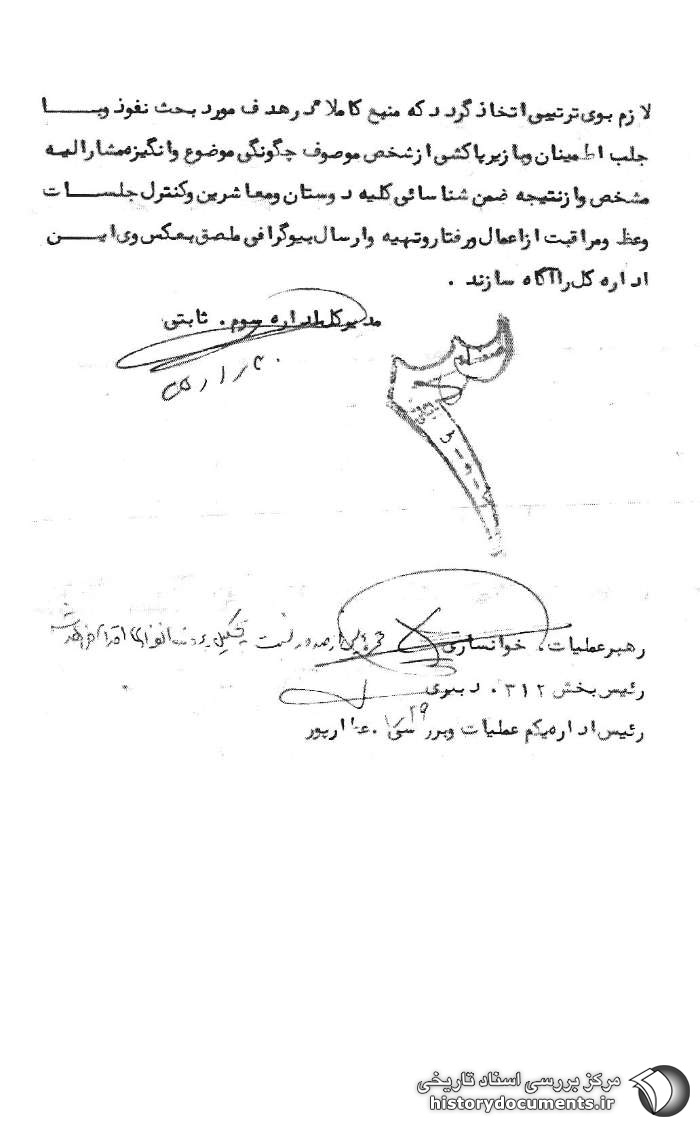 لازم بوی ترتیبی اتخاذ گردد که منبع کاملا در هدف مورد بحث نفوذ وبا
جلب اطمینان وبا زیرپاکشی از شخص موصوف چگونگی موضوع وانگیزه مشارالیه
مشخص وازنتیجه ضمن شناسائی کلیه دوستان ومعاشرین وکنترل جلسات
وعظ ومراقبت ازاعمال ورفتار وتهیه وارسال بیوگرافی ملصق بعکس وی این
اداره کل راآگاه سازند .
مدیرکل اداره سوم . ثابتی
رهبرعملیات . خوانساری
رئیس بخش ۳۱۲ . دبیری
رئیس اداره یکم عملیات وبررسی . عطارپور
مرکز بررسی اسناد تاریخی
historydocuments.ir